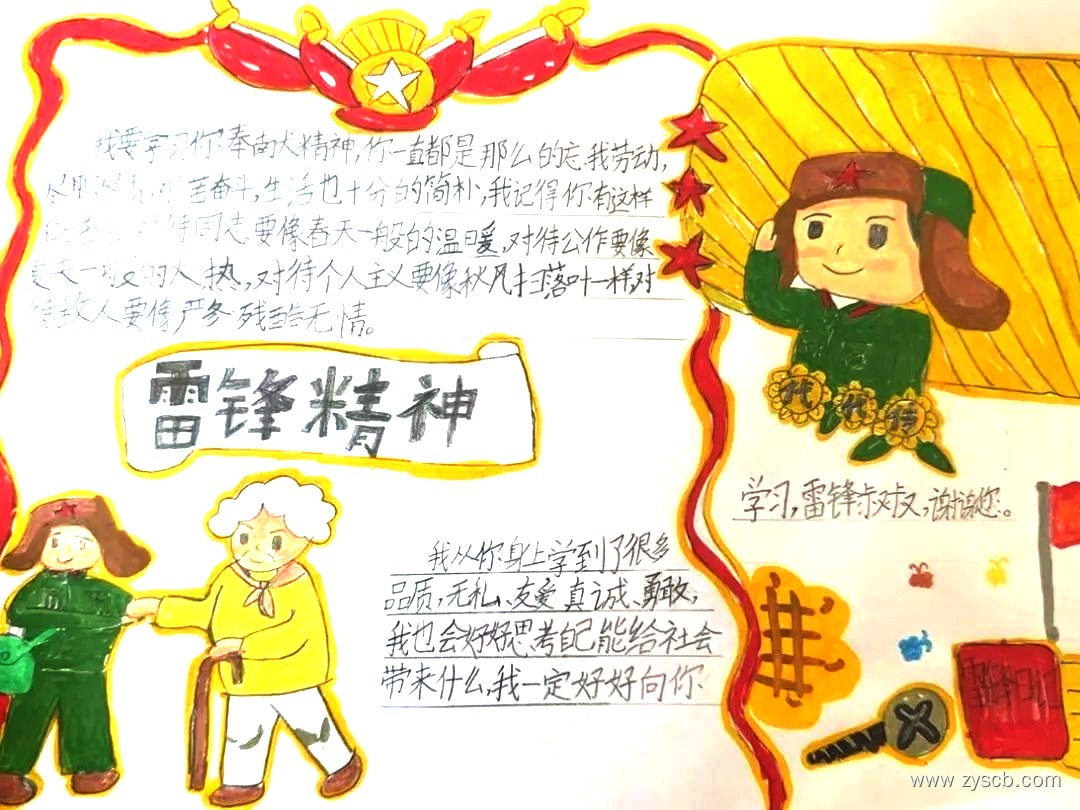 我要学习你奉献精神,你一直都是那么的忘我劳动,
苦奋斗,生活也十分的简朴,我记得你有这样
待同志要像春天一般的温暖,对待公作要像
夏天一般的火热,对待个人主义要像秋风扫落叶一样,对
待敌人要像严冬残酷无情。
雷锋精神
我从你身上学到了很多
品质,无私、友爱真诚、勇敢,
我也会好好思考自己能给社会
带来什么,我一定好好向你
代代传
学习,雷锋叔叔,谢谢您。
雷锋日记
www.zyscb.com